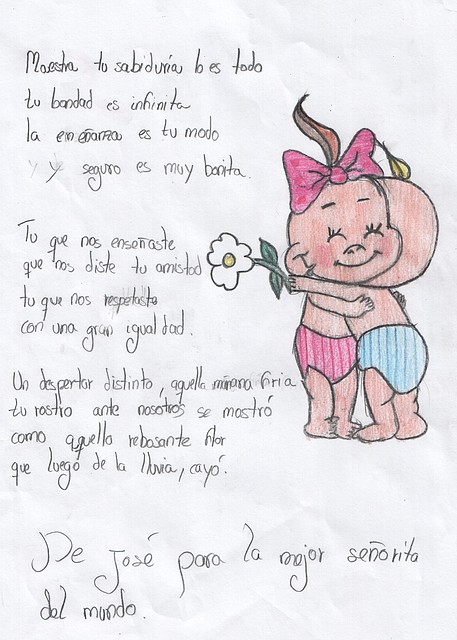 Maestra tu sabiduría lo es todo
tu bondad es infinita
la enseñanza es tu modo
y y seguro es muy bonita.
Tu que nos enseñaste
que nos diste tu amistad
tu que nos respetaste
con una gran igualdad.
Un despertar distinto, aquella mañana fria
tu rostro ante nosotros se mostró
como aquella rebosante flor
que luego de la lluvia, cayó.
De José para la mejor señorita
del mundo.